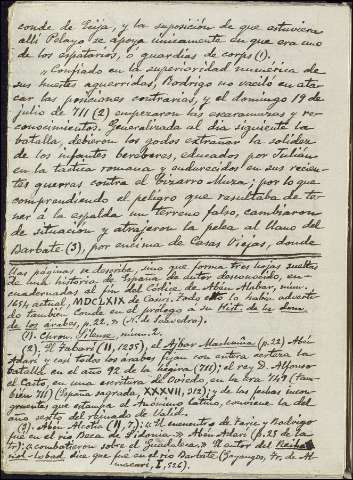 conde de Ecija, y la suposición de que estuviera
allí Pelayo se apoya únicamente en que era uno
de los espatarios, ó guardias de corps (1).
„Confiado en la superioridad numérica de
sus huestes aguerridas, Rodrigo no vaciló en ata-
car las posiciones contrarias, y el domingo 19 de
julio de 711 (2) empezaron las escaramuzas y re-
conocimientos. Generalizada al día siguiente la
batalla, debieron los godos extrañar la solidez
de los infantes bereberes, educados por Julián
en la táctica romana y endurecidos en sus recien-
tes guerras contra el bizarro Muza; por lo que
comprendiendo el peligro que resultaba de te-
ner á la espalda un terreno falso, cambiaron
de situación y atrajeron la pelea al llano del
Barbate (3), por encima de Casas Viejas, donde
llas páginas se describe, sino que forma tres hojas sueltas
de una historia de España de autor desconocido, en-
cuadernadas al fin del Códice de Aben Alabar, núm.
1649, actual, MDCLXIX de Casiri. Todo esto lo había adverti-
do también Conde en el prólogo á su Hist. de la dom.
de los árabes, p. 22. » (N. de Saavedra).
(1). Chron. Silense, núm.
(2). El Tabarí (II, 1235), el Ajbar Machmúa (p. 22) Aben
Adarí y casi todos los árabes fijan con entera certeza la
batalla en el año 92 de la hégira (711); el rey D. Alfonso
el Casto, en una escritura de Oviedo, en la era 749 (tam-
bién 711) (España sagrada, XXXVII, 312); y de las fechas incon-
gruentes que estampa el Anónimo latino, conviene la del
año sexto del reinado de Valid.
(3). Aben Alcotía (II, 7): «El encuentro de Taric y Rodrigo
fué en el río Beca de Sidonia.» Aben Adarí (p. 25 de la
tr.): «combatieron sobre el Guadaleca.» El autor del
dice que fué en el río Barbate (Gayangos, tr. de Al-
macarí, I, 526).